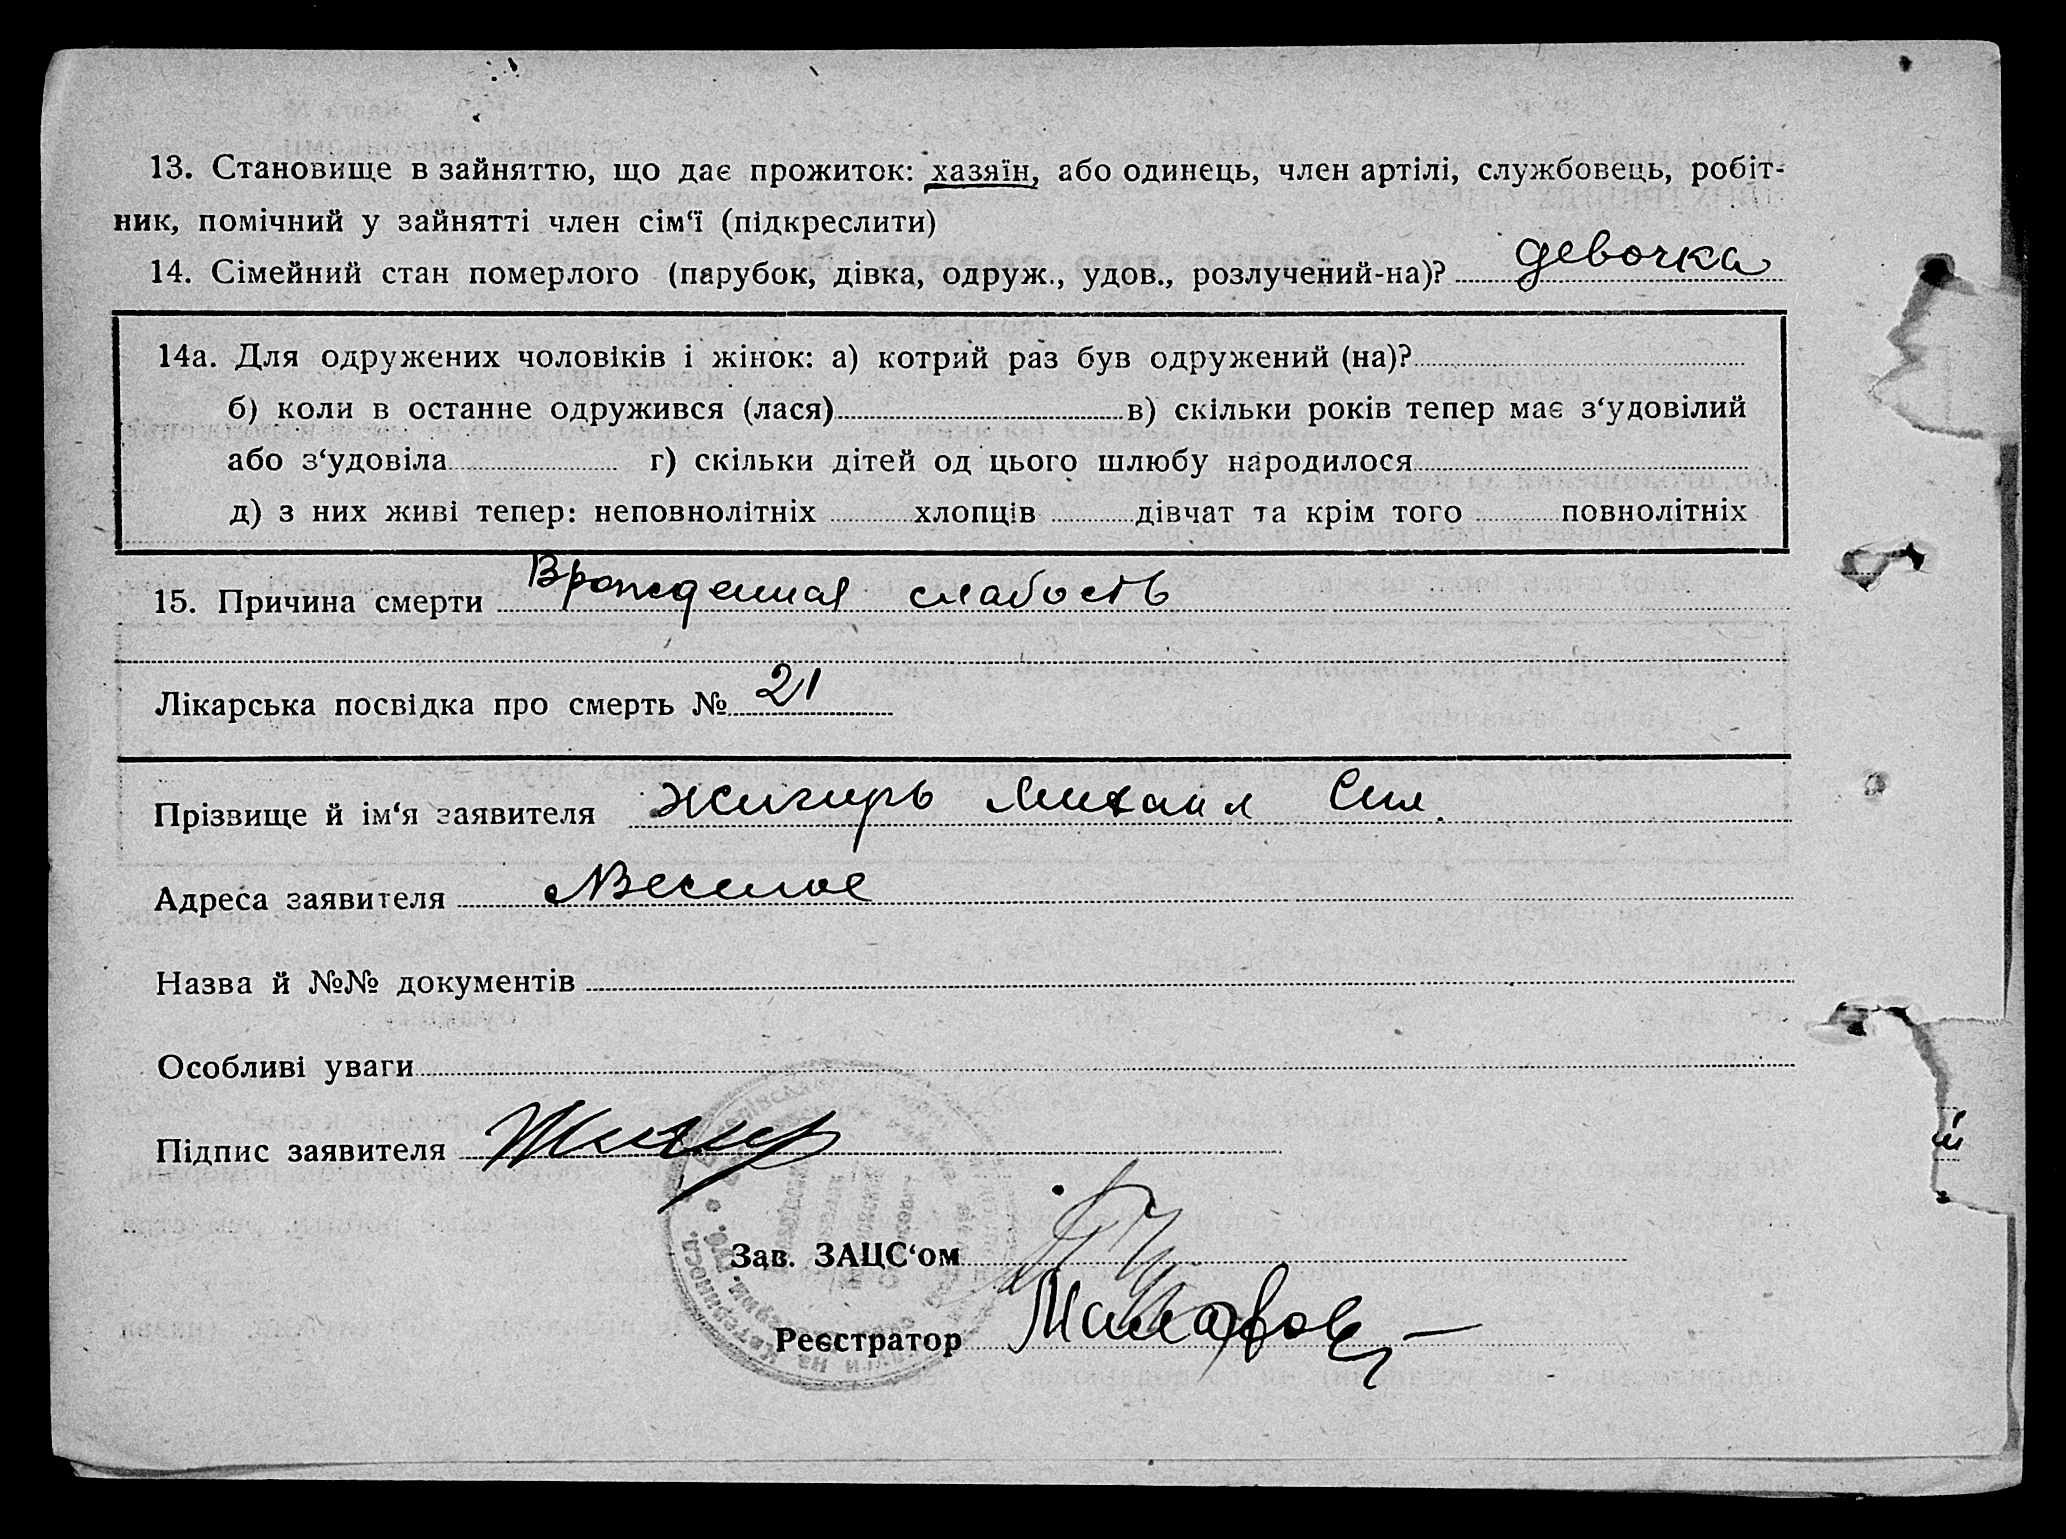 13. Становище в зайняттю, що дає прожиток: хазяїн, або одинець, член артілі, службовець, робіт-
ник, помічний у зайнятті член сім‘ї (підкреслити)
14. Сімейний стан померлого (парубок, дівка, одруж., удов., розлучений-на)? девочка
14а. Для одружених чоловіків і жінок: а) котрий раз був одружений (на)?
б) коли в останне одружився (лася) в) скільки років тепер має з‘удовілий
або з‘удовіла г) скільки дітей од цього шлюбу народилося
д) з них живі тепер: неповнолітніх хлопців дівчат та крім того повнолітніх
15. Причина смерти Врожденная слабость
Лікарська посвідка про смерть № 21
Прізвище й ім‘я заявителя Жигирь Михаил Сил.
Адреса заявителя Веселое
Назва й №№ документів
Особливі уваги
Підпис заявителя Жигир
Зав. ЗАЦС‘ом
Реєстратор